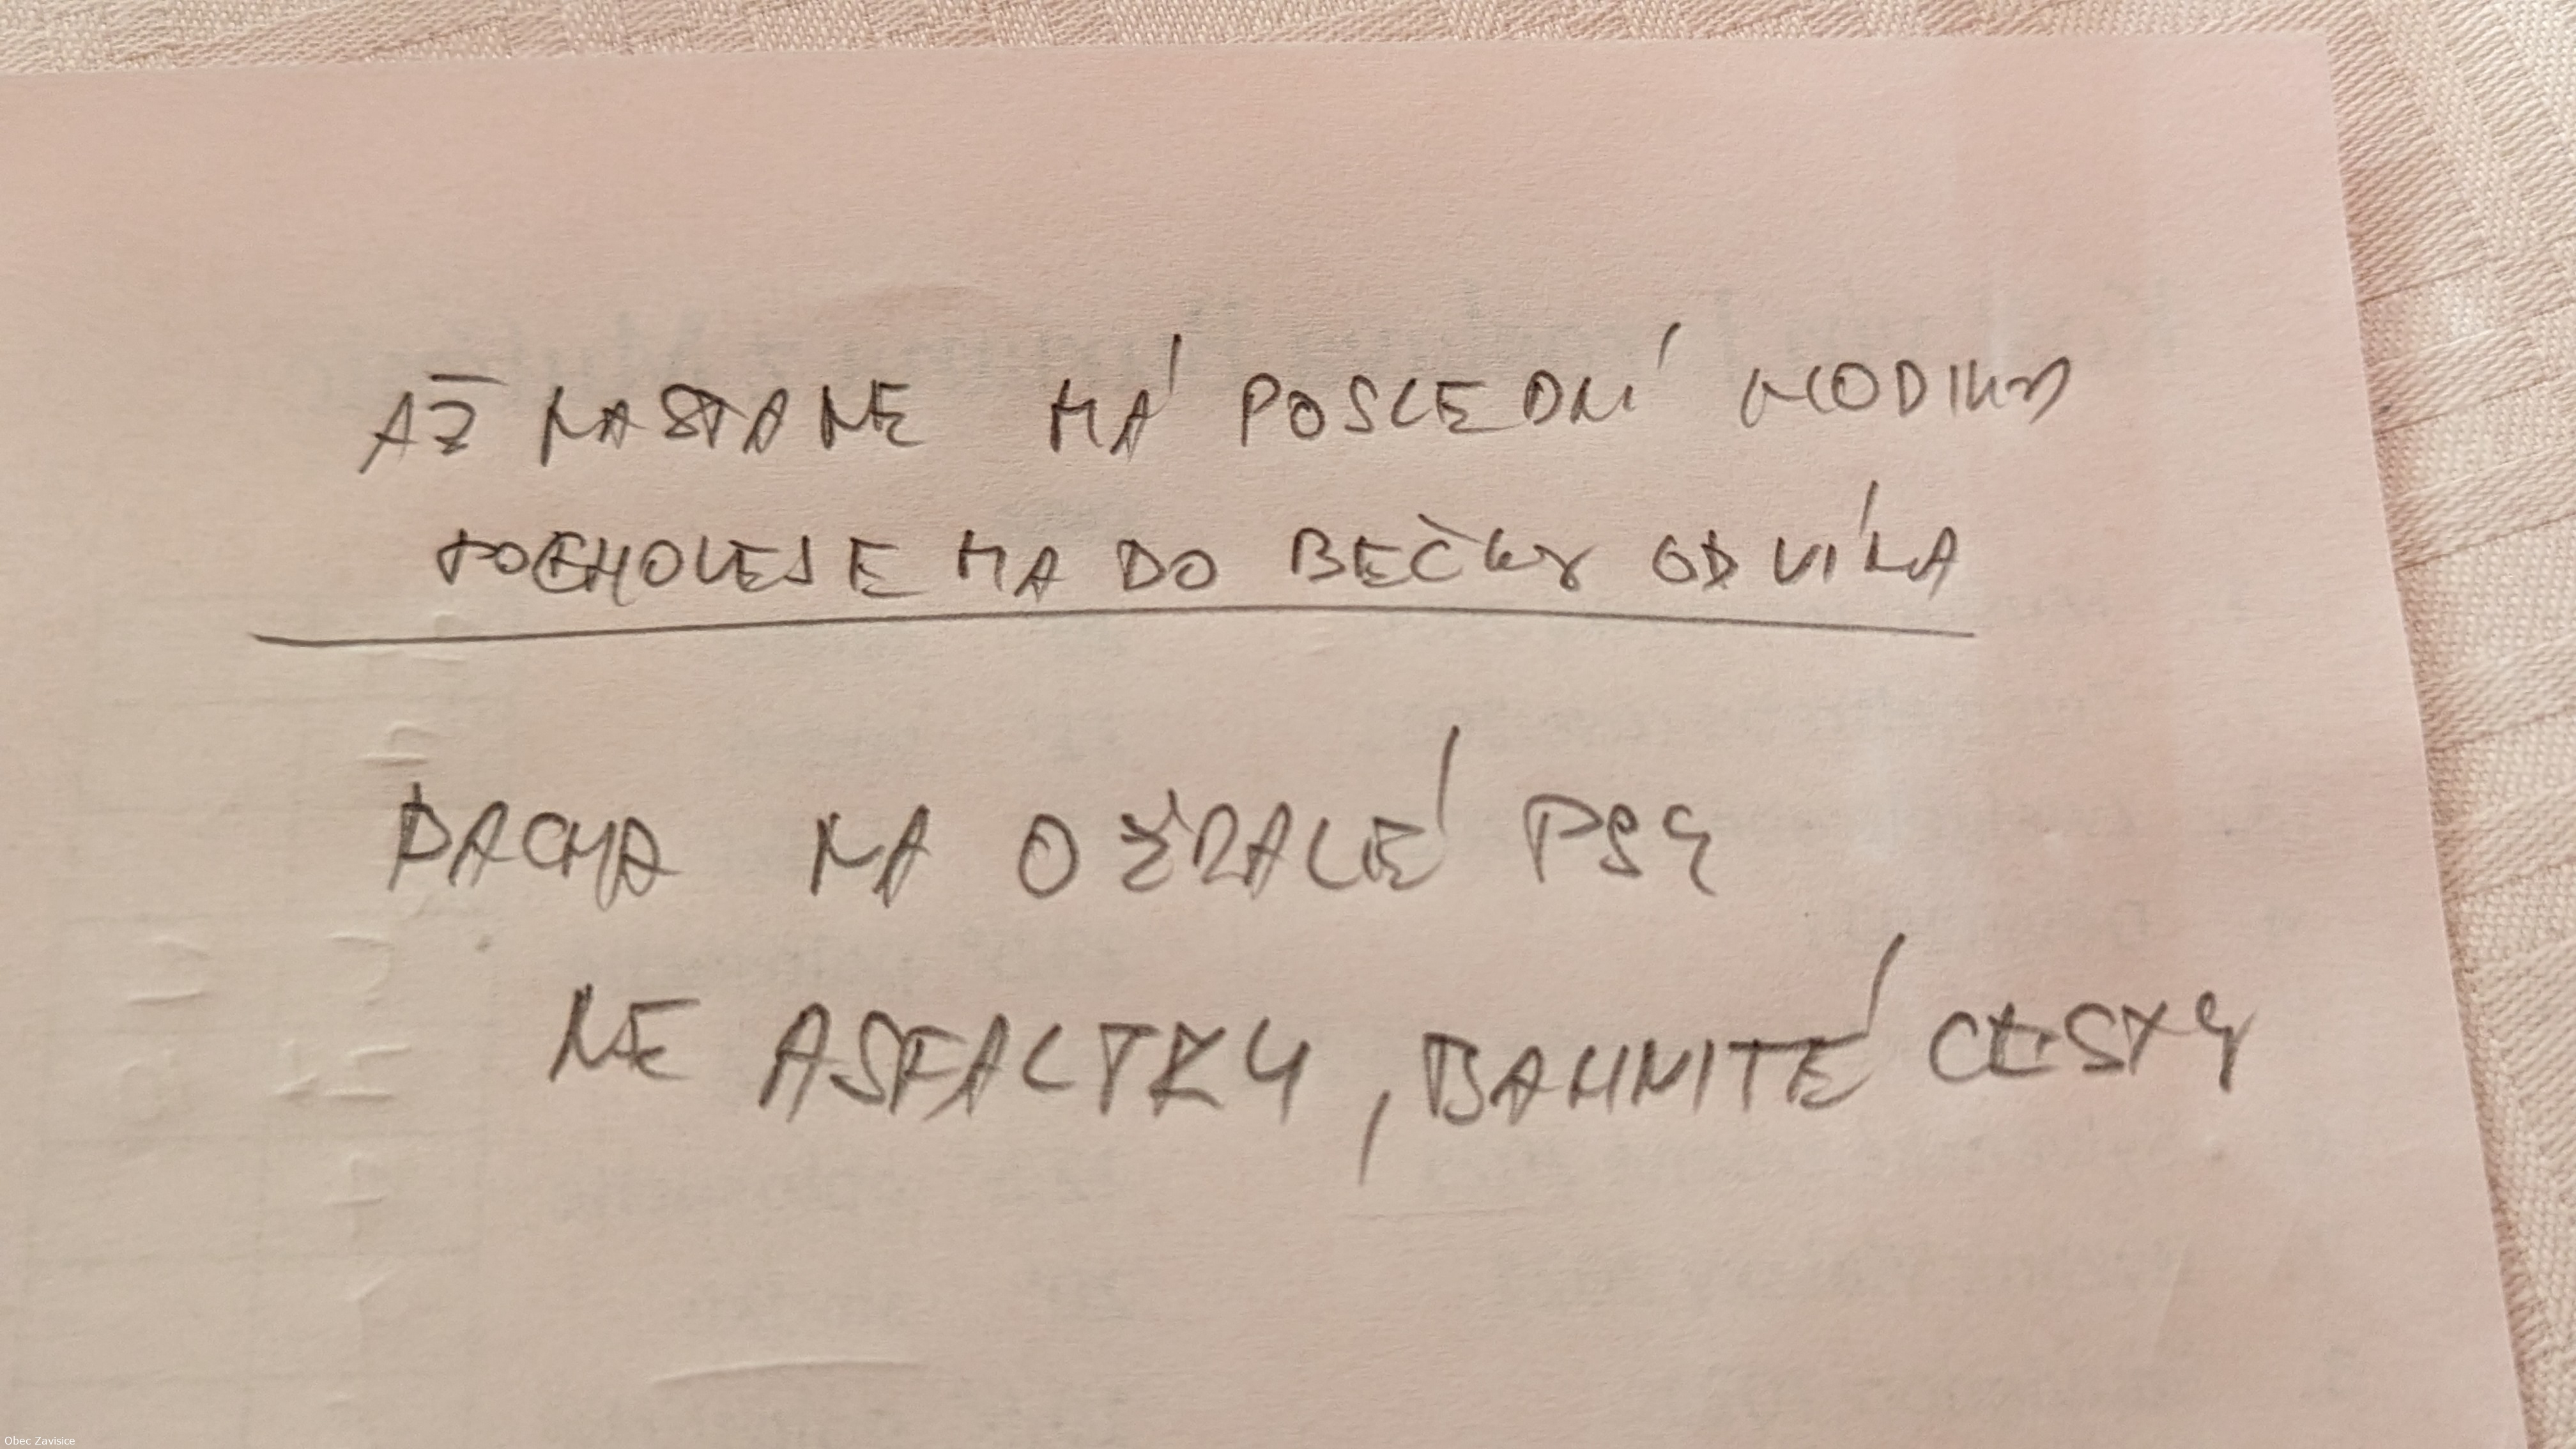 AŽ NASTANE MÁ POSLEDNÍ HODINA
POCHOVEJTE MA DO BEČKY OD VÍNA
BACHA NA OŽRALÉ PSY
NE ASFALTKY, BAHNITÉ CESTY
Obec Zavisice